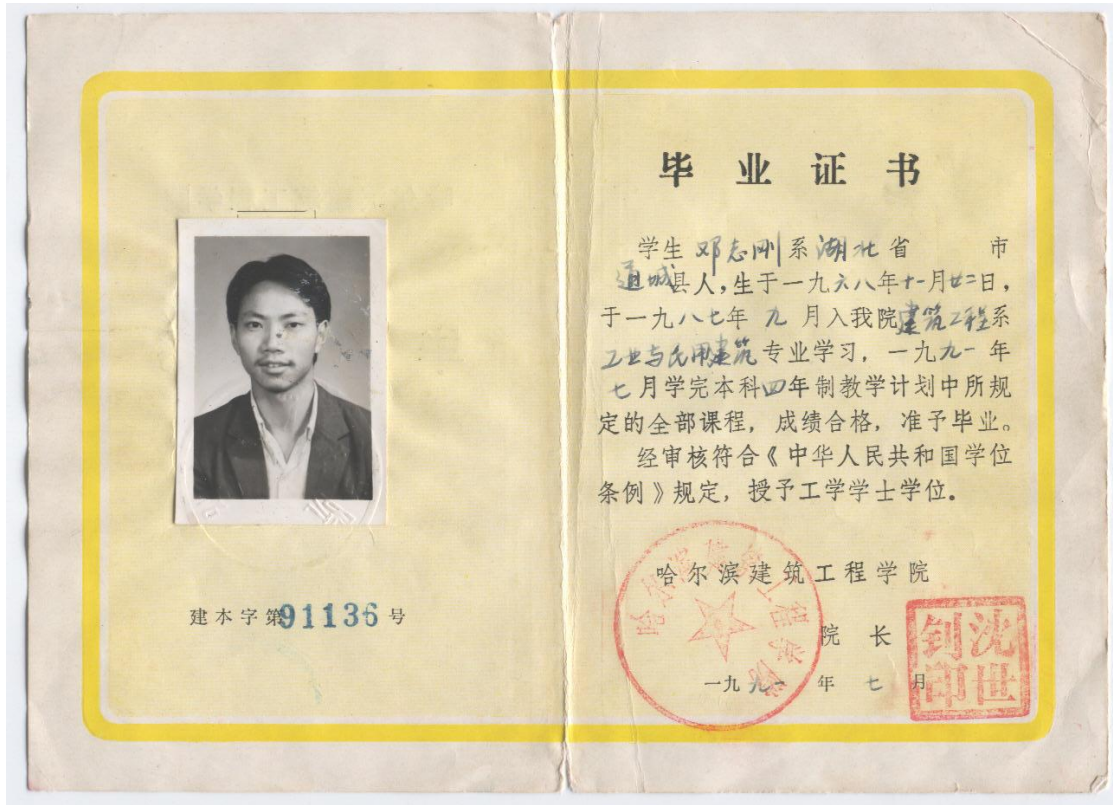 建本字第91136号
毕业证书
学生 邓志刚 系 湖北 省 市
通城县人，生于一九六八年十一月廿二日，
于一九八七年 九 月入我院建筑工程系
工业与民用建筑专业学习，一九九一 年
七月学完本科四年制教学计划中所规
定的全部课程，成绩合格，准予毕业。
经审核符合《中华人民共和国学位
条例》规定，授予工学学士学位。
哈尔滨建筑工程学院
院 长
一九九一 年 七 月
哈尔滨建筑工程学院
沈世钊印